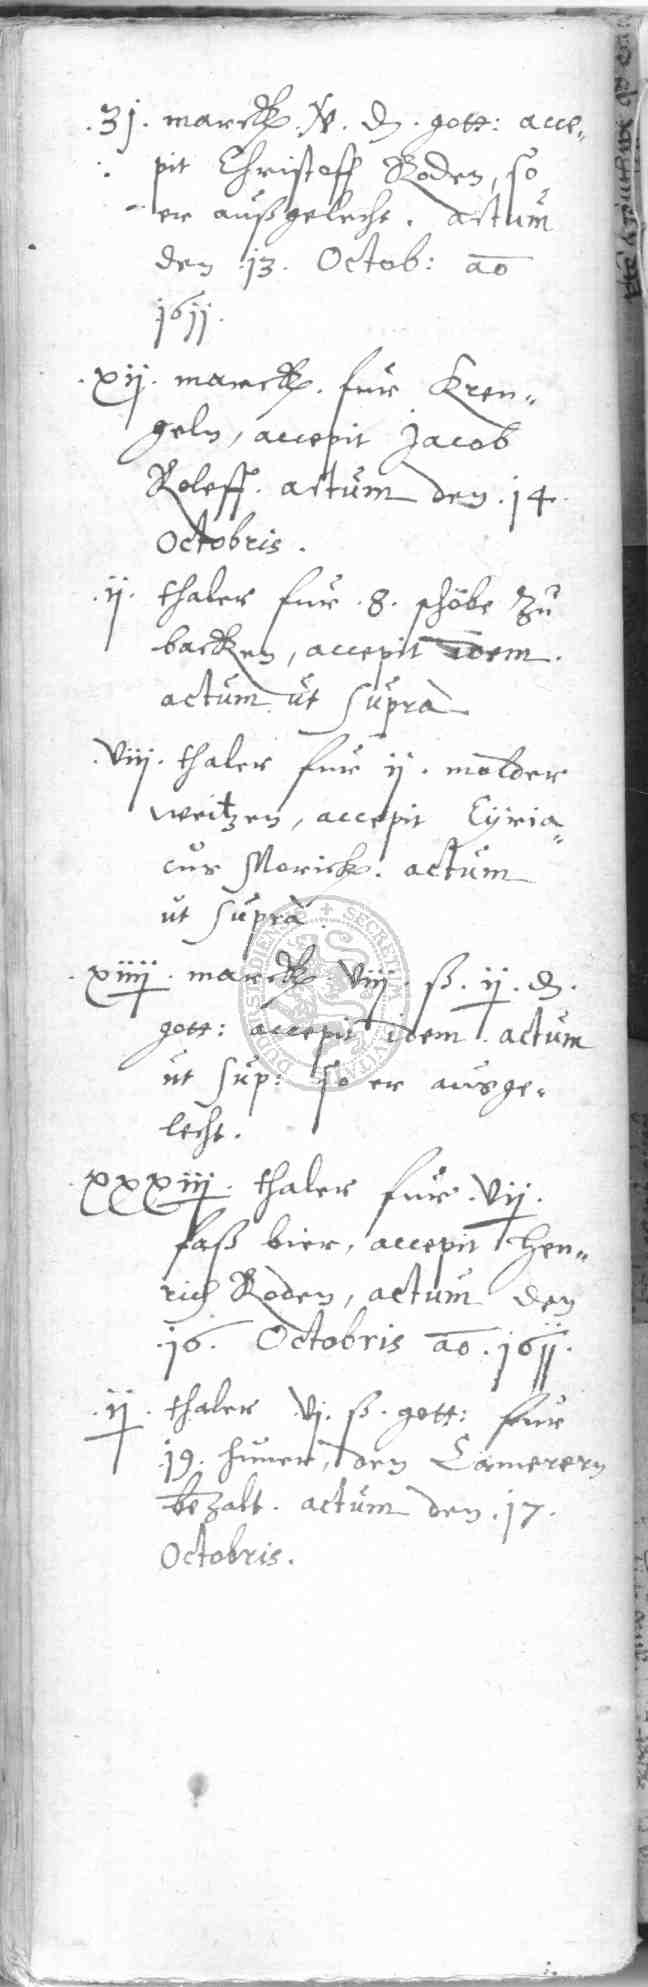 .31. marck .V. d. gott: acce„
pit Christoff Roden, so
er außgelecht. actum
den .13. Octob: ao
1611.
.xij. marck. fur Kren„
geln, accepit Jacob
Roleff. actum den .14.
Octobris.
.ij. thaler fur .8. schöbe zu
backen, accepit idem.
actum ut supra
.viij. thaler fur ij. molder
weitzen, accepit Cyria„
cus Morick. actum
ut supra
.xiiij. marck viij. ß. ij. d.
gott: accepit idem. actum
ut sup: so er ausge„
lecht.
.xxxiij. thaler fur .vij.
faß bier, accepit Hen„
rich Roden, actum den
.16. Octobris ao. 1611.
.ij. thaler .vj. ß. gott: fur
.19. huner, den Camerern
bezalt. actum den .17.
Octobris.
SECRETUM CIVITATIS DUDERSTADIENSIS